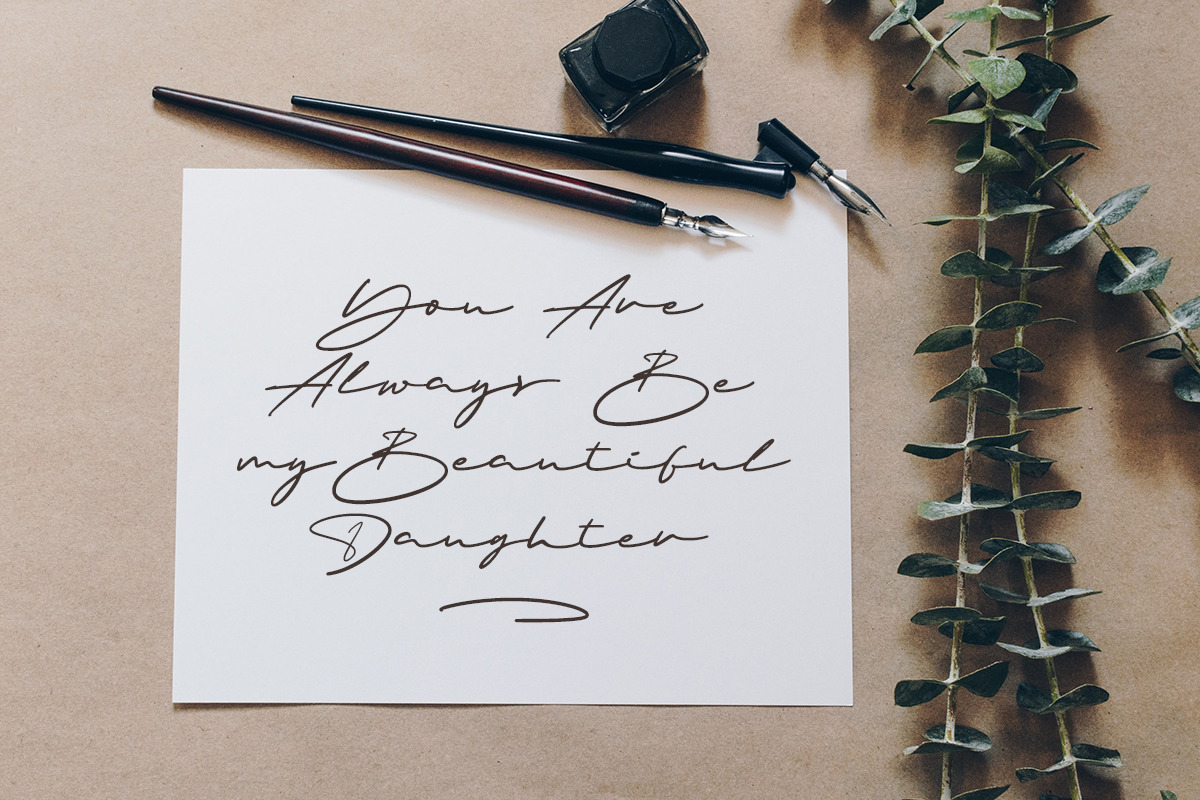 You Are
Always Be
my Beautiful
Daughter